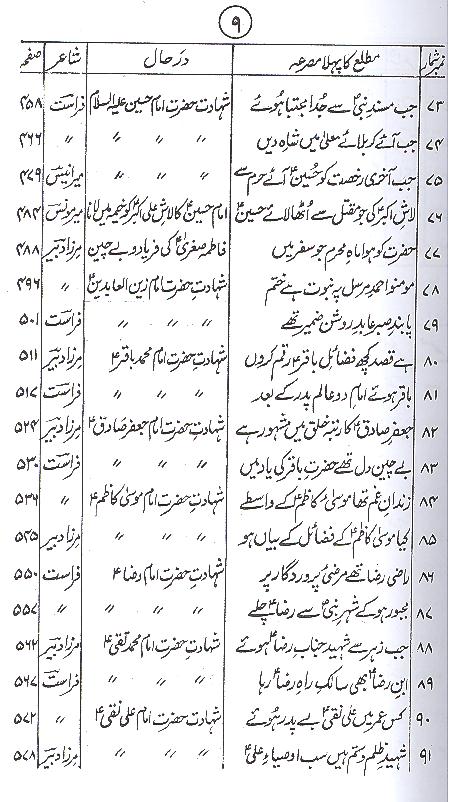 ۹
نمبر شمار مطلع کا پہلا مصرعہ در حال شاعر صفحہ
۷۳ جب مسندِ نبیؐ سے جُدا مجتبٰیؑ ہوئے شہادتِ حضرت امام حسین علیہ السلام فراست ۴۵۸
۷۴ جب آئے کربلائے معلیٰ میں شاہِ دیں 〃 〃 〃 〃 ۴۶۶
۷۵ جب آخری رخصت کو حُسینؑ آئے حرم سے 〃 〃 〃 میر انیس ۴۷۹
۷۶ لاشِ اکبرؑ کی جو مقتل سے اُٹھا لائے حسینؑ امام حسینؑ کا لاشِ علی اکبرؑ کو خیمہ میں لانا میر مونس ۴۸۴
۷۷ حضرت کو ہوا ماہِ محرم جو سفر میں فاطمہ صغریٰؑ کی فریاد و بے چین مرزا دبیر ۴۸۸
۷۸ مومنو احمدِ مرسل پہ نبوت ہے ختم شہادتِ حضرت امام زین العابدینؑ 〃 ۴۹۶
۷۹ پابندِ صبر عابدِ روشن ضمیر تھے 〃 〃 〃 فراست ۵۰۱
۸۰ ہے قصد کچھ فضائلِ باقرؑ رقم کروں شہادتِ حضرت امام محمد باقرؑ مرزا دبیر ۵۱۱
۸۱ باقر ہوئے امامِ دو عالم پدر کے بعد 〃 〃 〃 فراست ۵۱۷
۸۲ جعفر صادقؑ کا رتبہ خلق میں مشہور ہے شہادتِ حضرت امام جعفر صادقؑ مرزا دبیر ۵۲۴
۸۳ بے چین دل تھے حضرتِ باقر کی یاد میں 〃 〃 〃 فراست ۵۳۰
۸۴ زندانِ غم تھا موسیٰ کاظمؑ کے واسطے شہادتِ حضرت امام موسیٰ کاظمؑ 〃 ۵۳۶
۸۵ کیا موسیٰ کاظمؑ کے فضائل کے بیاں ہو 〃 〃 〃 مرزا دبیر ۵۴۵
۸۶ راضی رضاؑ تھے مرضیِ پروردگار پر شہادتِ حضرت امام رضاؑ فراست ۵۵۰
۸۷ مجبور ہو کے شہرِ نبیؐ سے رضاؑ چلے 〃 〃 〃 〃 ۵۵۷
۸۸ جب زہر سے شہید جنابِ رضاؑ ہوئے شہادتِ حضرت امام محمد تقیؑ مرزا دبیر ۵۶۲
۸۹ ابنِ رضاؑ بھی سالکِ راہِ رضاؑ رہا 〃 〃 〃 فراست ۵۶۷
۹۰ کس عمر میں علی نقیؑ بے پدر ہوئے شہادتِ حضرت امام علی نقیؑ 〃 ۵۷۲
۹۱ شہیدِ ظلم و ستم ہیں سب اوصیاءِ علیؑ 〃 〃 〃 مرزا دبیر ۵۷۸